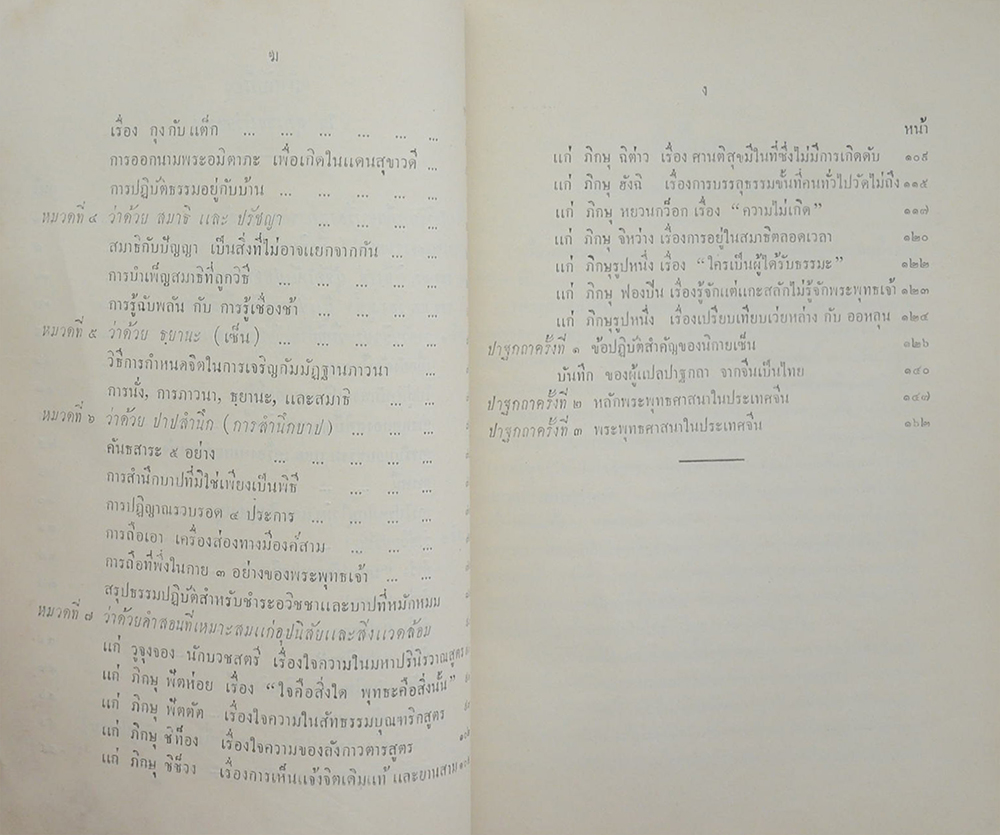 ฆ
เรื่อง กุงกับแต็ก ... ... ... ... ... ...
การออกนามพระอมิตาภะ เพื่อเกิดในแดนสุขาวดี ...
การปฏิบัติธรรมอยู่กับบ้าน ... ... ... ...
หมวดที่ ๔ ว่าด้วย สมาธิ และ ปรัชญา
สมาธิกับปัญญา เป็นสิ่งที่ไม่อาจแยกจากกัน ... ...
การบำเพ็ญสมาธิที่ถูกวิธี ... ... ... ...
การรู้ฉับพลัน กับ การรู้เชื่องช้า ... ... ... ...
หมวดที่ ๕ ว่าด้วย ธฺยานะ (เซ็น) ... ... ... ...
วิธีการกำหนดจิตในการเจริญกัมมัฏฐานภาวนา ...
การนั่ง, การภาวนา, ธฺยานะ, และสมาธิ ... ...
หมวดที่ ๖ ว่าด้วย ปาปสำนึก (การสำนึกบาป) ... ... ...
คันธสาระ ๕ อย่าง ... ... ... ... ...
การสำนึกบาปที่มิใช่เพียงเป็นพิธี ... ... ...
การปฏิญาณรวบรอด ๔ ประการ ... ... ... ...
การถือเอา เครื่องส่องทางมีองค์สาม ... ... ...
การถือที่พึ่งในกาย ๓ อย่างของพระพุทธเจ้า ... ...
สรุปธรรมปฏิบัติสำหรับชำระอวิชชาและบาปที่หมักหมม
หมวดที่ ๗ ว่าด้วยคำสอนที่เหมาะสมแก่อุปนิสัยและสิ่งแวดล้อม
แก่ วูจุงจอง นักบวชสตรี เรื่องใจความในมหาปรินิรวาณสูตร
แก่ ภิกษุ ฟัตห่อย เรื่อง “ใจคือสิ่งใด พุทธะคือสิ่งนั้น”
แก่ ภิกษุ ฟัตตัต เรื่องใจความในสัทธรรมบุณฑริกสูตร
แก่ ภิกษุ ชิท็อง เรื่องใจความของลังกาวตารสูตร
แก่ ภิกษุ ชิช็วง เรื่องการเห็นแจ้งจิตเดิมแท้ และยานสาม
ง
หน้า
แก่ ภิกษุ ฉิต่าว เรื่อง ศานติสุขมีในที่ซึ่งไม่มีการเกิดดับ ๑๐๙
แก่ ภิกษุ ฮังฉิ เรื่องการบรรลุธรรมขั้นที่คนทั่วไปวัดไม่ถึง ๑๑๕
แก่ ภิกษุ หยวนกว็อก เรื่อง “ความไม่เกิด” ๑๑๗
แก่ ภิกษุ จิหว่าง เรื่องการอยู่ในสมาธิตลอดเวลา ๑๒๐
แก่ ภิกษุรูปหนึ่ง เรื่อง “ใครเป็นผู้ได้รับธรรมะ” ๑๒๒
แก่ ภิกษุ ฟองปืน เรื่องรู้จักแต่แกะสลักไม่รู้จักพระพุทธเจ้า ๑๒๓
แก่ ภิกษุรูปหนึ่ง เรื่องเปรียบเทียบเว่ยหล่าง กับ ออหลุน ๑๒๔
ปาฐกถาครั้งที่ ๑ ข้อปฏิบัติสำคัญของนิกายเซ็น ๑๒๖
บันทึก ของผู้แปลปาฐกถา จากจีนเป็นไทย ๑๔๐
ปาฐกถาครั้งที่ ๒ หลักพระพุทธศาสนาในประเทศจีน ๑๔๗
ปาฐกถาครั้งที่ ๓ พระพุทธศาสนาในประเทศจีน ๑๖๒